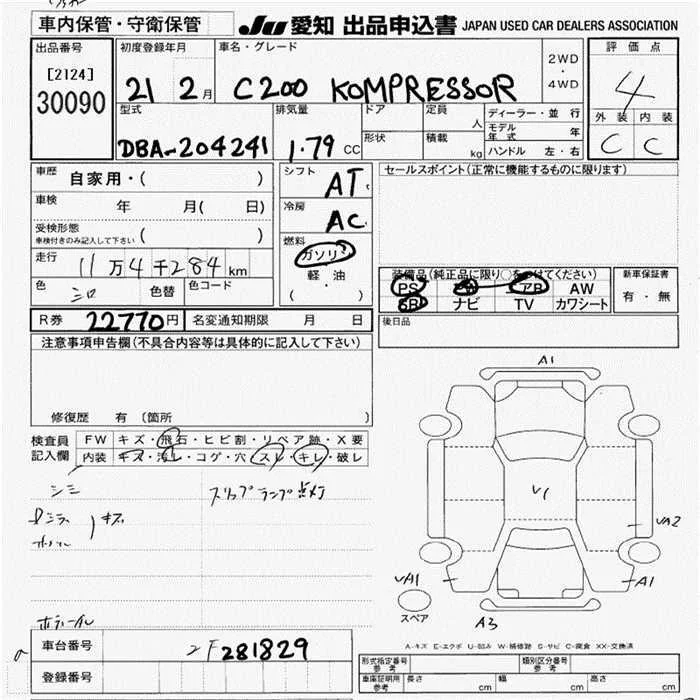 車内保管・守衛保管
JU 愛知 出品申込書 JAPAN USED CAR DEALERS ASSOCIATION
出品番号
[2124]
30090
初度登録年月
21 2月
車名・グレード
C200 KOMPRESSOR
2WD
・
4WD
評価点
4
外装 内装
C C
型式
DBA-204241
排気量
1.79 CC
ドア
形状
定員
人
積載
kg
ディーラー・並行
モデル年式 年
ハンドル 左・右
車歴
自家用・( )
車検
年 月( 日)
受検形態
車検付きのみ記入して下さい ( )
走行
11万4千284km
色
シロ
色替
色コード
シフト
AT
冷房
AC
燃料
ガソリン
軽・油
( )
セールスポイント(正常に機能するものに限ります)
装備品(純正品に限り○をつけてください)
PS PW エアB AW
SR ナビ TV カワシート
新車保証書
有・無
後日品
R券 22770円
名変通知期限 月 日
注意事項申告欄(不具合内容等は具体的に記入して下さい)
修復歴 有 〔箇所 〕
検査員
記入欄
FW キズ・飛石・ヒビ割・リペア跡・X要
内装 キズ・汚レ・コゲ・穴・スレ・キレ・破レ
シミ
スリップランプ点灯
キズ
A1
V1
VA2
VA1
A1
スペア
A3
A-キズ E-エクボ U-凹み W-補修跡 S-サビ C-腐食 XX-交換済
車台番号
2F281829
登録番号
型式指定番号
参考
類別区分番号
参考
車庫証明用
参考
長さ cm
幅 cm
高さ cm